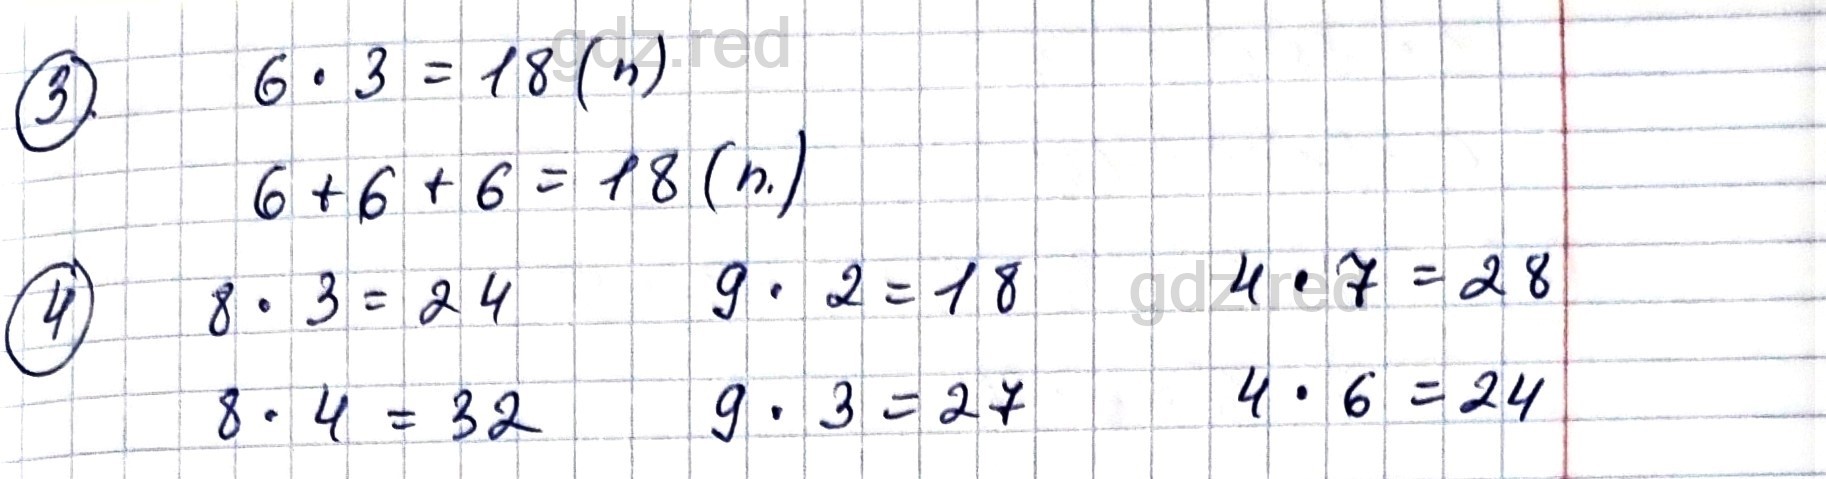 gdz.red
3. 6 · 3 = 18 (п)
6 + 6 + 6 = 18 (п.)
4 8 · 3 = 24 9 · 2 = 18 4 · 7 = 28
gdz.red
8 · 4 = 32 9 · 3 = 27 4 · 6 = 24